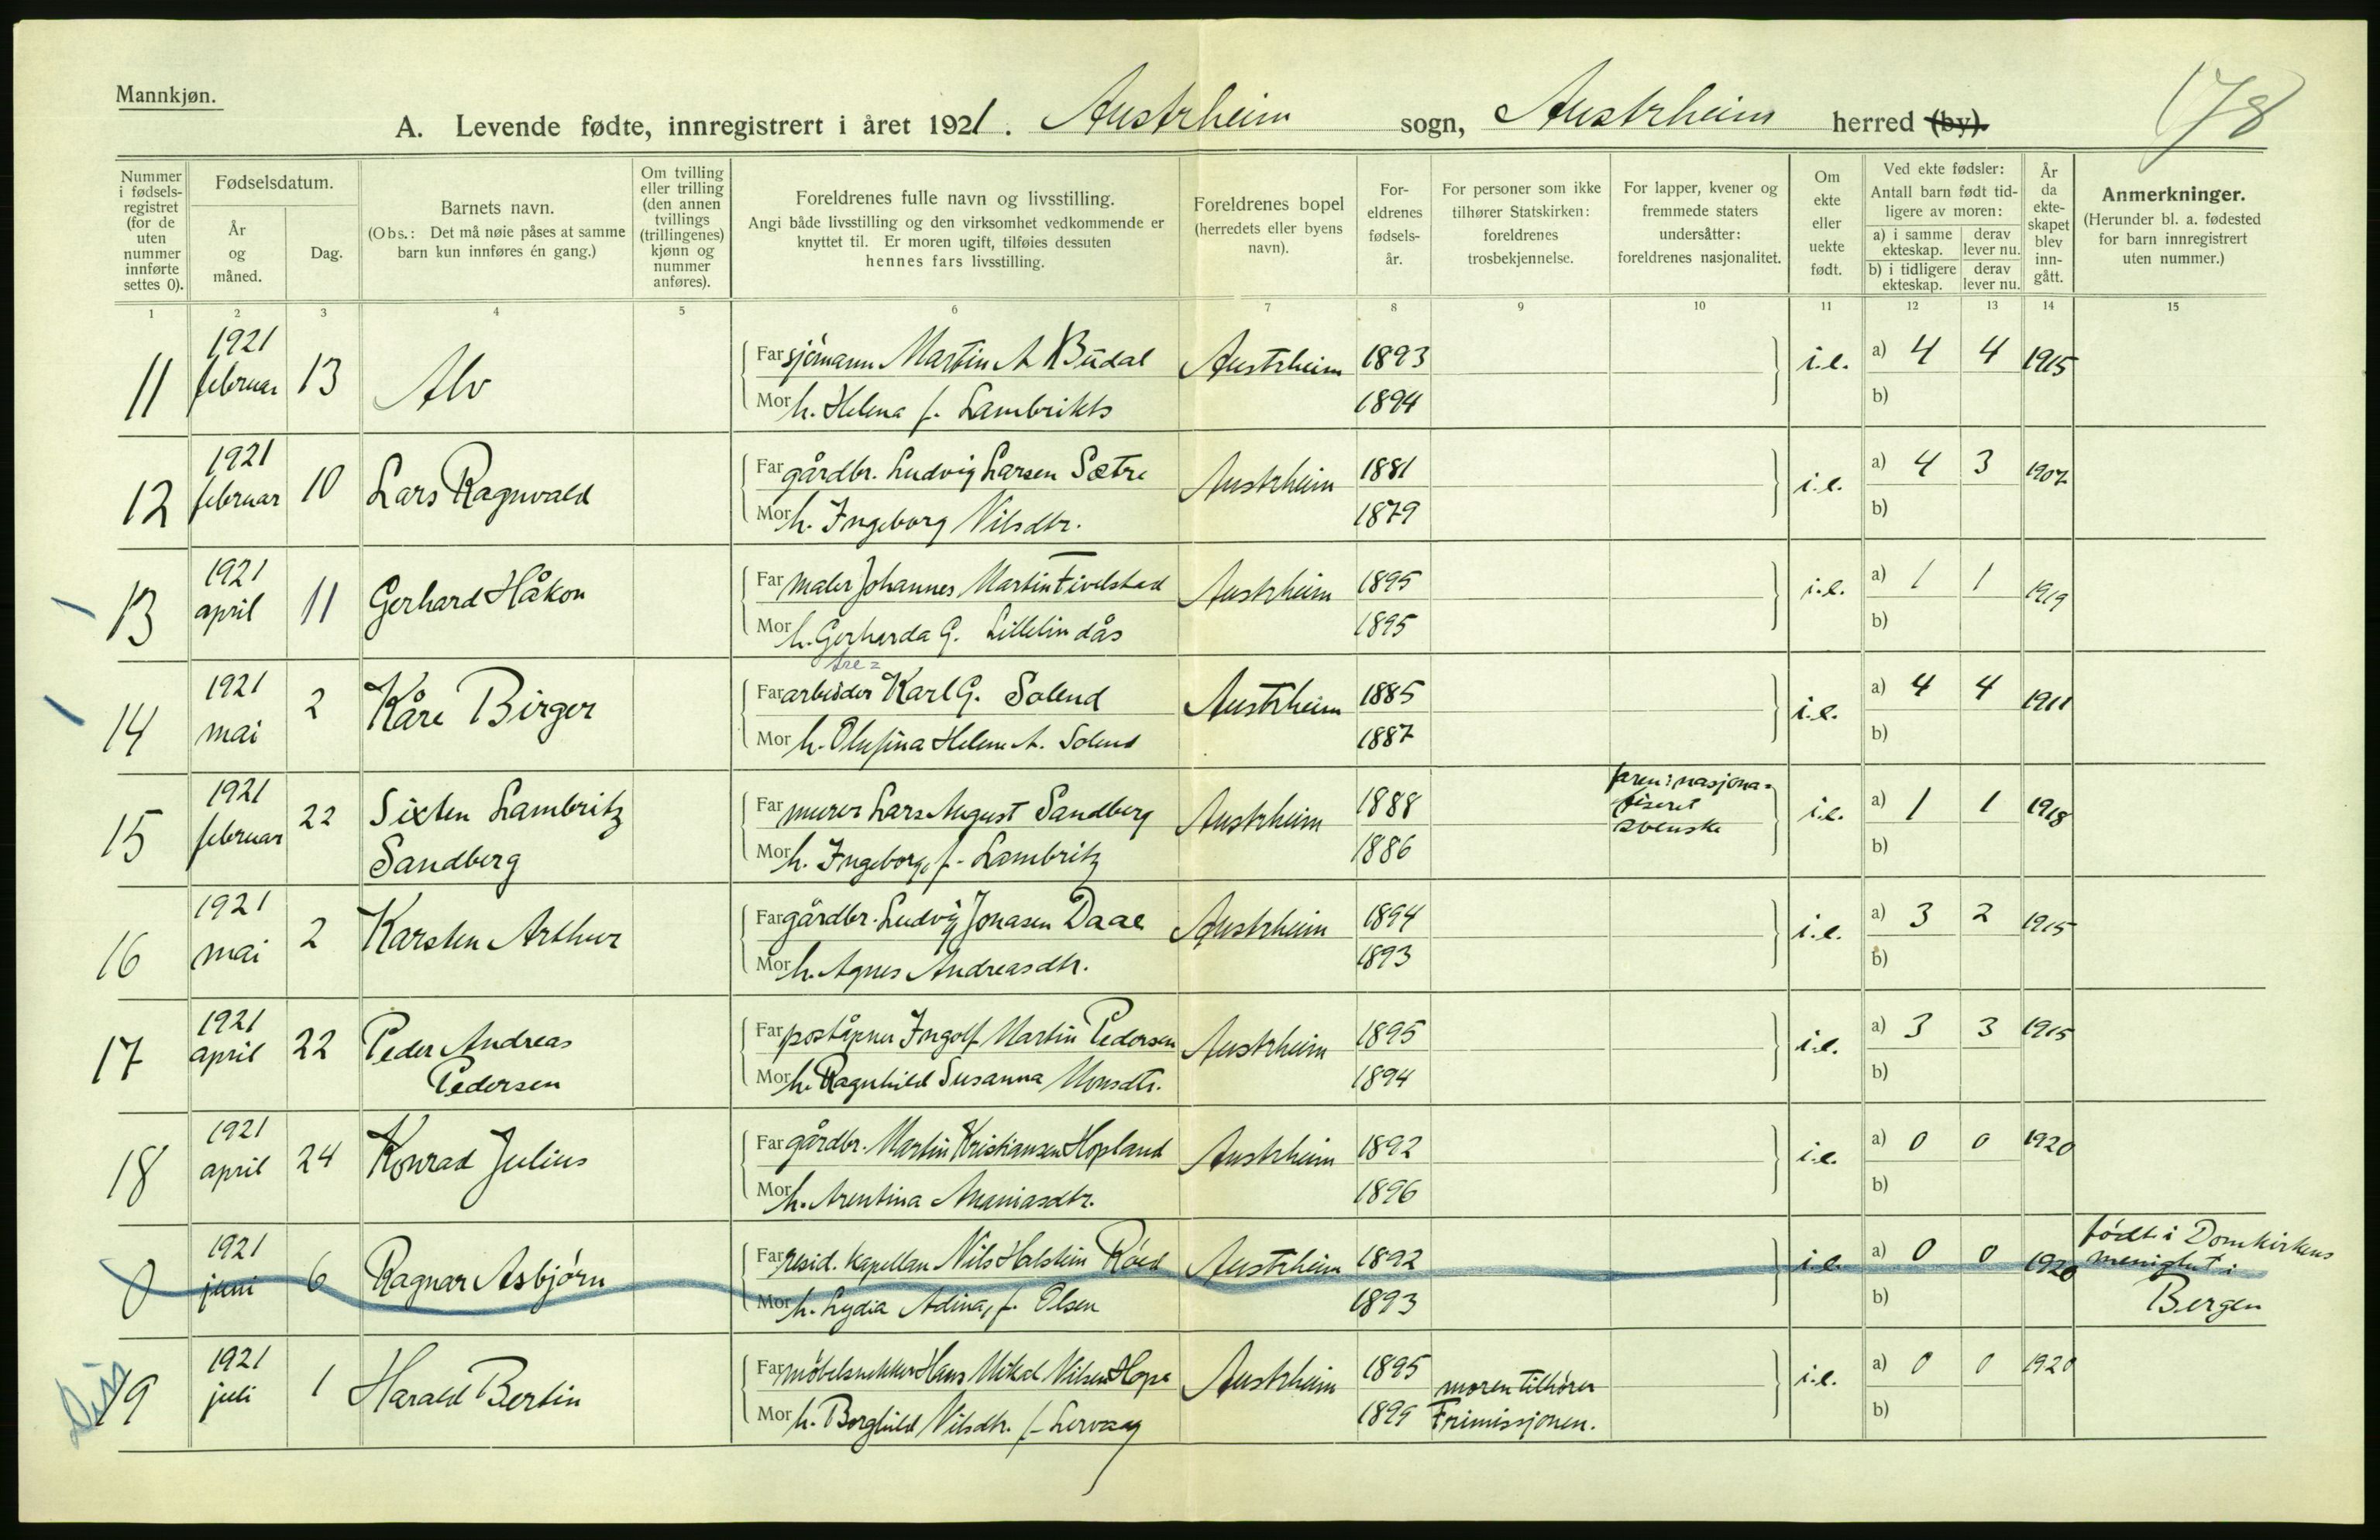 Mannkjøn.
178
A. Levende fødte, innregistrert i året 1921. Austrheim sogn, Austrheim herred (by).
Nummer i fødsels-registret (for de uten nummer innførte settes 0).
Fødselsdatum.
År og måned.
Dag.
Barnets navn.
(Obs.: Det må nøie påses at samme barn kun innføres én gang.)
Om tvilling eller trilling (den annen tvillings (trillingenes) kjønn og nummer anføres).
Foreldrenes fulle navn og livsstilling.
Angi både livsstilling og den virksomhet vedkommende er knyttet til. Er moren ugift, tilføies dessuten hennes fars livsstilling.
Foreldrenes bopel (herredets eller byens navn).
For-eldrenes fødsels-år.
For personer som ikke tilhører Statskirken: foreldrenes trosbekjennelse.
For lapper, kvener og fremmede staters undersåtter: foreldrenes nasjonalitet.
Om ekte eller uekte født.
Ved ekte fødsler:
Antall barn født tid-ligere av moren:
a) i samme ekteskap. derav lever nu.
b) i tidligere ekteskap. derav lever nu.
År da ekte-skapet blev inn-gått.
Anmerkninger.
(Herunder bl. a. fødested for barn innregistrert uten nummer.)
1 2 3 4 5 6 7 8 9 10 11 12 13 14 15
11 1921 februar 13 Alv
Far sjømann Martin A. Budal Austrheim 1893 i.e. a) 4 4 1915
Mor h. Helena f. Lambrikts 1894 b)
12 1921 februar 10 Lars Ragnvald
Far gårdbr. Ludvig Larsen Sætre Austrheim 1881 i.e. a) 4 3 1907
Mor h. Ingeborg Nilsdtr. 1879 b)
13 1921 april 11 Gerhard Håkon
Far maler Johannes Martin Fivelstad Austrheim 1895 i.e. a) 1 1 1919
Mor h. Gerharda G. Lillelindås 1895 b)
14 1921 mai 2 Kåre Birger
Far arbeider Karl G. Solend Austrheim 1885 i.e. a) 4 4 1911
Mor h. Olufina Helene A. Solend 1887 b)
15 1921 februar 22 Sixten Lambritz Sandberg
Far murer Lars August Sandberg Austrheim 1888 faren: nasjona-liseret svenske i.e. a) 1 1 1918
Mor h. Ingeborg, f. Lambritz 1886 b)
16 1921 mai 2 Karsten Arthur
Far gårdbr. Ludvig Jonasen Daae Austrheim 1894 i.e. a) 3 2 1915
Mor h. Agnes Andreasdtr. 1893 b)
17 1921 april 22 Peder Andreas Pedersen
Far poståpner Ingolf Martin Pedersen Austrheim 1895 i.e. a) 3 3 1915
Mor h. Ragnhild Susanna Monsdtr. 1894 b)
18 1921 april 24 Konrad Julius
Far gårdbr. Martin Kristiansen Hopland Austrheim 1892 i.e. a) 0 0 1920
Mor h. Arentina Ananiasdtr. 1896 b)
0 1921 juni 6 Ragnar Asbjørn
Far resid. kapellan Nils Halstein Røed Austrheim 1892 i.e. a) 0 0 1920 født i Domkirkens menighet i Bergen
Mor h. Lydia Adina, f. Olsen 1893 b)
19 1921 juli 1 Harald Bertin
Far møbelsnekker Hans Mikal Nilsen Hope Austrheim 1895 i.e. a) 0 0 1920
Mor h. Borghild Nilsdtr. f. Lervaag 1899 moren tilhører Frimissjonen. b)